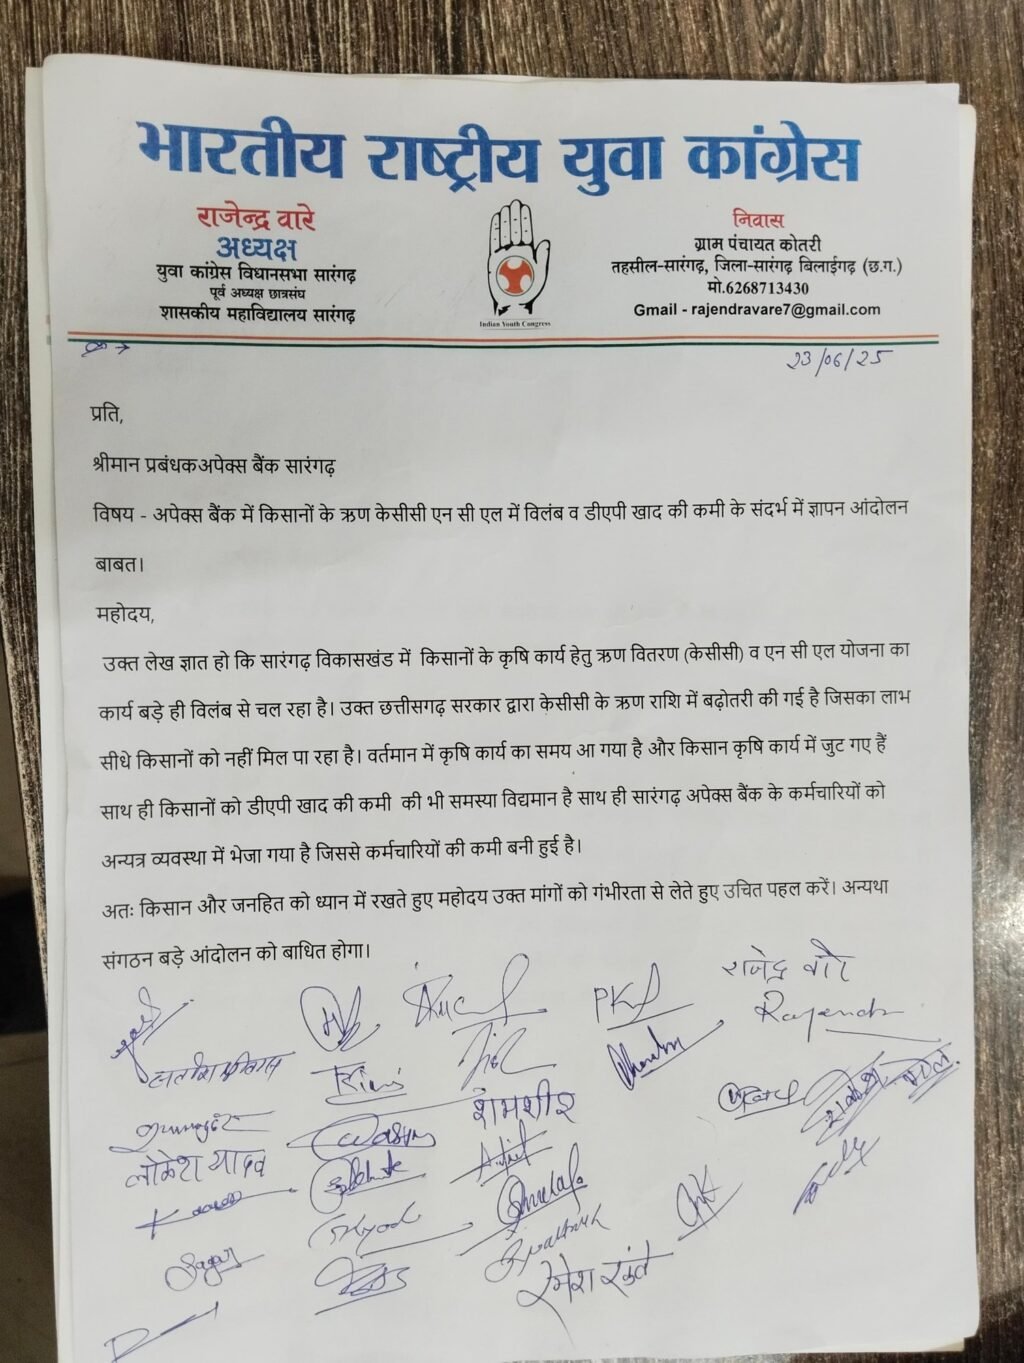 भारतीय राष्ट्रीय युवा कांग्रेस
राजेन्द्र वारे
अध्यक्ष
युवा कांग्रेस विधानसभा सारंगढ़
पूर्व अध्यक्ष छात्रसंघ
शासकीय महाविद्यालय सारंगढ़
Indian Youth Congress
निवास
ग्राम पंचायत कोतरी
तहसील-सारंगढ़, जिला-सारंगढ़ बिलाईगढ़ (छ.ग.)
मो.6268713430
Gmail - rajendravare7@gmail.com
23/06/25
प्रति,
श्रीमान प्रबंधकअपेक्स बैंक सारंगढ़
विषय - अपेक्स बैंक में किसानों के ऋण केसीसी एन सी एल में विलंब व डीएपी खाद की कमी के संदर्भ में ज्ञापन आंदोलन
बाबत।
महोदय,
उक्त लेख ज्ञात हो कि सारंगढ़ विकासखंड में किसानों के कृषि कार्य हेतु ऋण वितरण (केसीसी) व एन सी एल योजना का
कार्य बड़े ही विलंब से चल रहा है। उक्त छत्तीसगढ़ सरकार द्वारा केसीसी के ऋण राशि में बढ़ोतरी की गई है जिसका लाभ
सीधे किसानों को नहीं मिल पा रहा है। वर्तमान में कृषि कार्य का समय आ गया है और किसान कृषि कार्य में जुट गए हैं
साथ ही किसानों को डीएपी खाद की कमी की भी समस्या विद्यमान है साथ ही सारंगढ़ अपेक्स बैंक के कर्मचारियों को
अन्यत्र व्यवस्था में भेजा गया है जिससे कर्मचारियों की कमी बनी हुई है।
अतः किसान और जनहित को ध्यान में रखते हुए महोदय उक्त मांगों को गंभीरता से लेते हुए उचित पहल करें। अन्यथा
संगठन बड़े आंदोलन को बाधित होगा।
राजेन्द्र वारे
Rajendra
शमशीर
लोकेश यादव
Sagar
रमेश